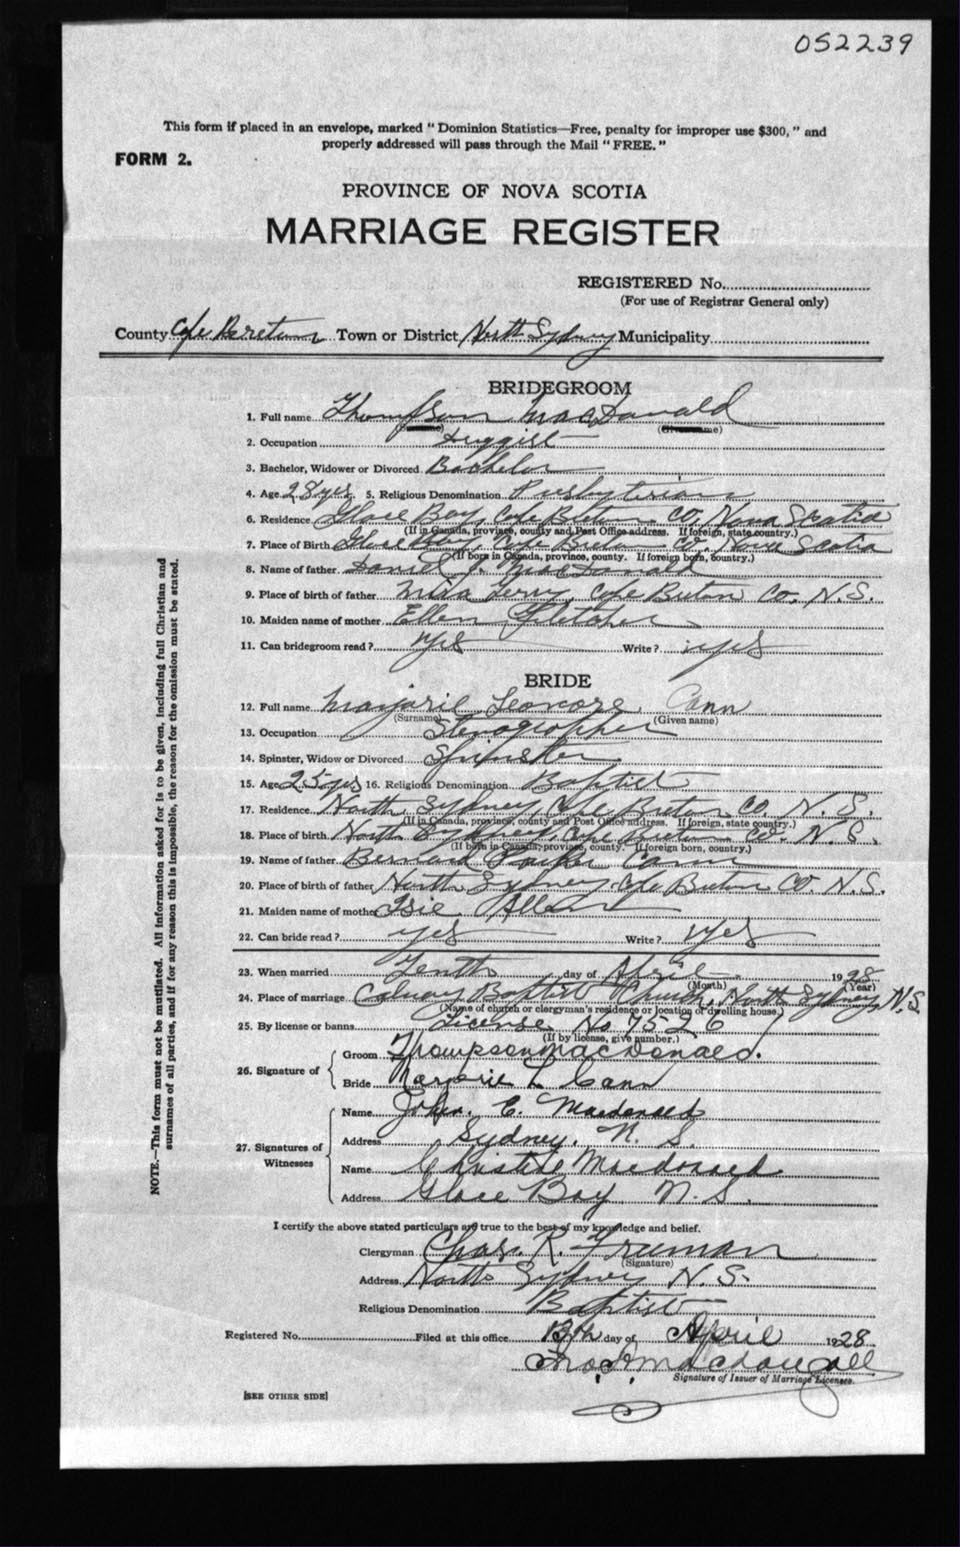 052239
This form if placed in an envelope, marked "Dominion Statistics—Free, penalty for improper use $300," and
properly addressed will pass through the Mail "FREE."
FORM 2.
PROVINCE OF NOVA SCOTIA
MARRIAGE REGISTER
REGISTERED No.
(For use of Registrar General only)
County Cape Breton Town or District North Sydney Municipality
BRIDEGROOM
1. Full name Thompson MacDonald
2. Occupation Druggist
3. Bachelor, Widower or Divorced Bachelor
4. Age 28 yrs. 5. Religious Denomination Presbyterian
6. Residence Glace Bay, Cape Breton Co, Nova Scotia
(If in Canada, province, county and Post Office address. If foreign, state country.)
7. Place of Birth Glace Bay, Cape Breton Co. Nova Scotia
(If born in Canada, province, county. If foreign born, country.)
8. Name of father Daniel J. MacDonald
9. Place of birth of father Mira Ferry, Cape Breton Co. N.S.
10. Maiden name of mother Ellen Fletcher
11. Can bridegroom read? Yes Write? yes
BRIDE
12. Full name Marjorie Cann
(Surname) (Given name)
13. Occupation Stenographer
14. Spinster, Widow or Divorced Spinster
15. Age 25 yrs 16. Religious Denomination Baptist
17. Residence North Sydney, Cape Breton Co. N.S.
(If in Canada, province, county and Post Office address. If foreign, state country.)
18. Place of birth North Sydney, Cape Breton Co. N.S.
(If born in Canada, province, county. If foreign born, country.)
19. Name of father Bernard Cann
20. Place of birth of father North Sydney, Cape Breton Co. N.S.
21. Maiden name of mother
22. Can bride read? yes Write? yes
23. When married Tenth day of April 1928
(Month) (Year)
24. Place of marriage Calvary Baptist Church, North Sydney, N.S.
(Name of church or clergyman's residence or location of dwelling house.)
25. By license or banns License No. 7526
(If by license, give number.)
26. Signature of
Groom Thompson MacDonald.
Bride Marjorie L Cann
27. Signatures of Witnesses
Name John. C. Macdonald
Address Sydney. N. S.
Name Christine Macdonald
Address Glace Bay N.S.
I certify the above stated particulars are true to the best of my knowledge and belief.
Clergyman Chas. R. Freeman
(Signature)
Address North Sydney N.S.
Religious Denomination Baptist
Registered No. Filed at this office 13th day of April 1928
MacDougall
Signature of Issuer of Marriage Licenses.
[SEE OTHER SIDE]
NOTE.—This form must not be mutilated. All information asked for is to be given, including full Christian and
surnames of all parties, and if for any reason this is impossible, the reason for the omission must be stated.